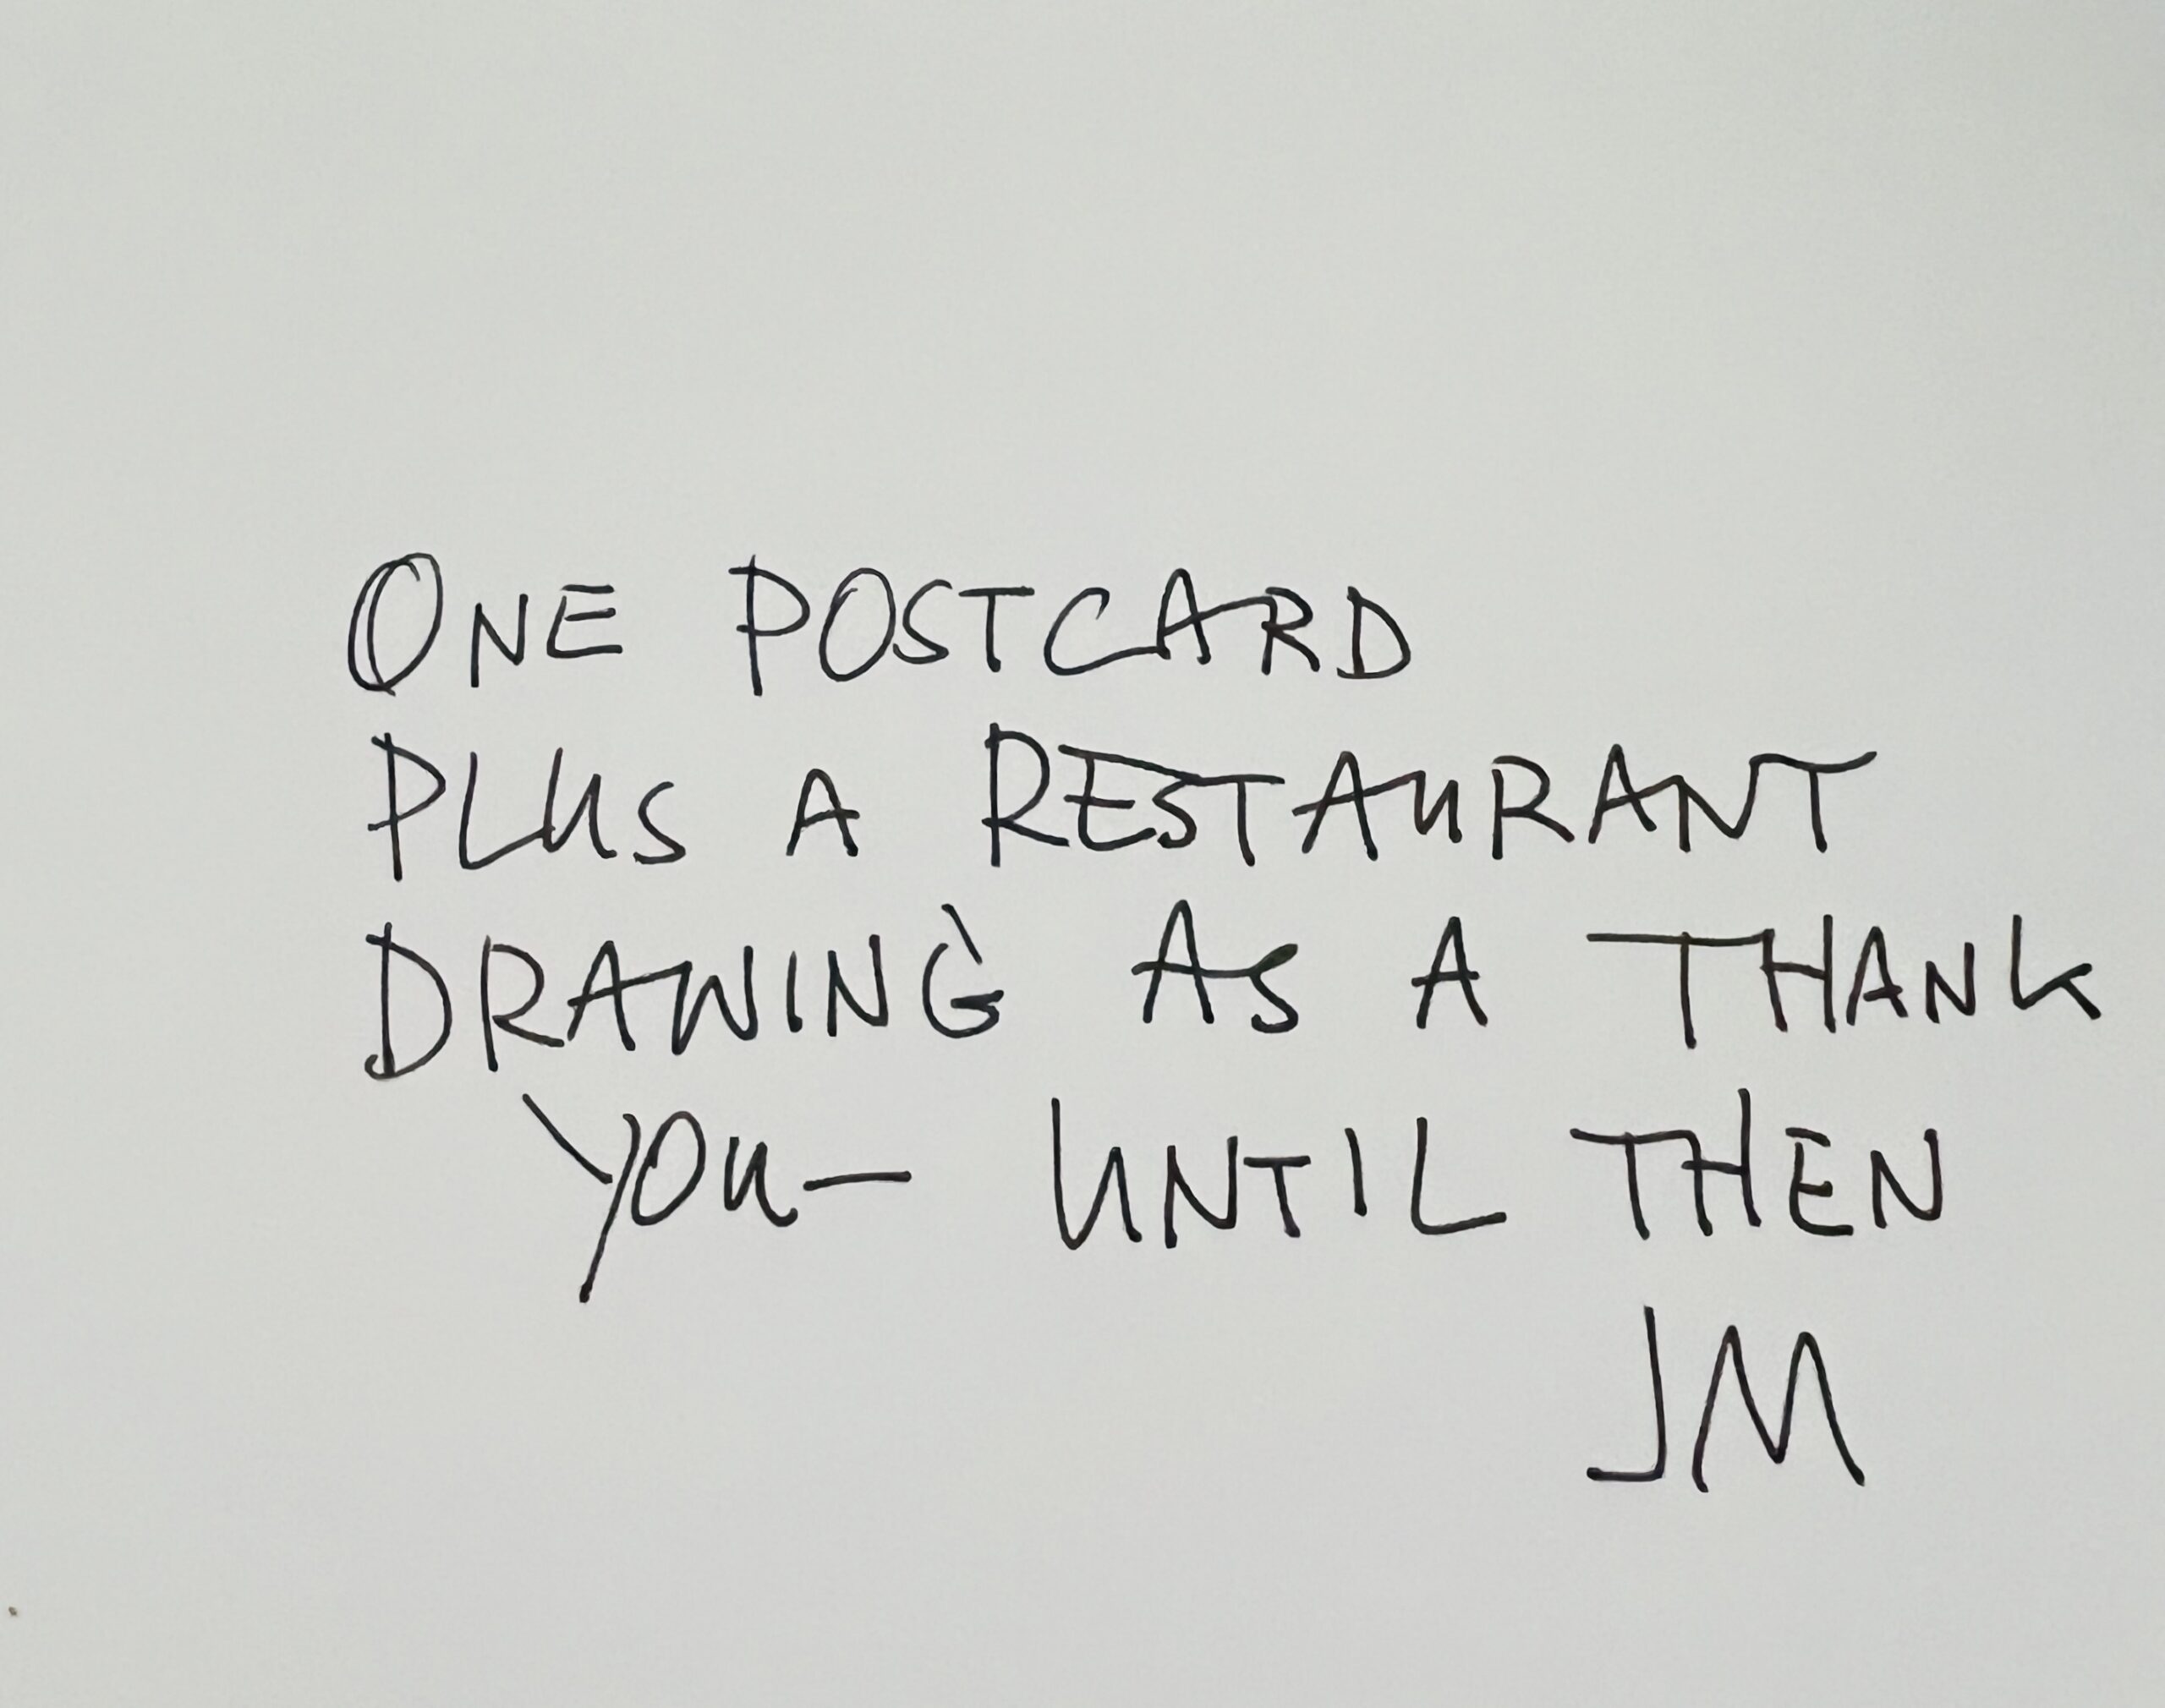 ONE POSTCARD
PLUS A RESTAURANT
DRAWING AS A THANK
YOU— UNTIL THEN
JM